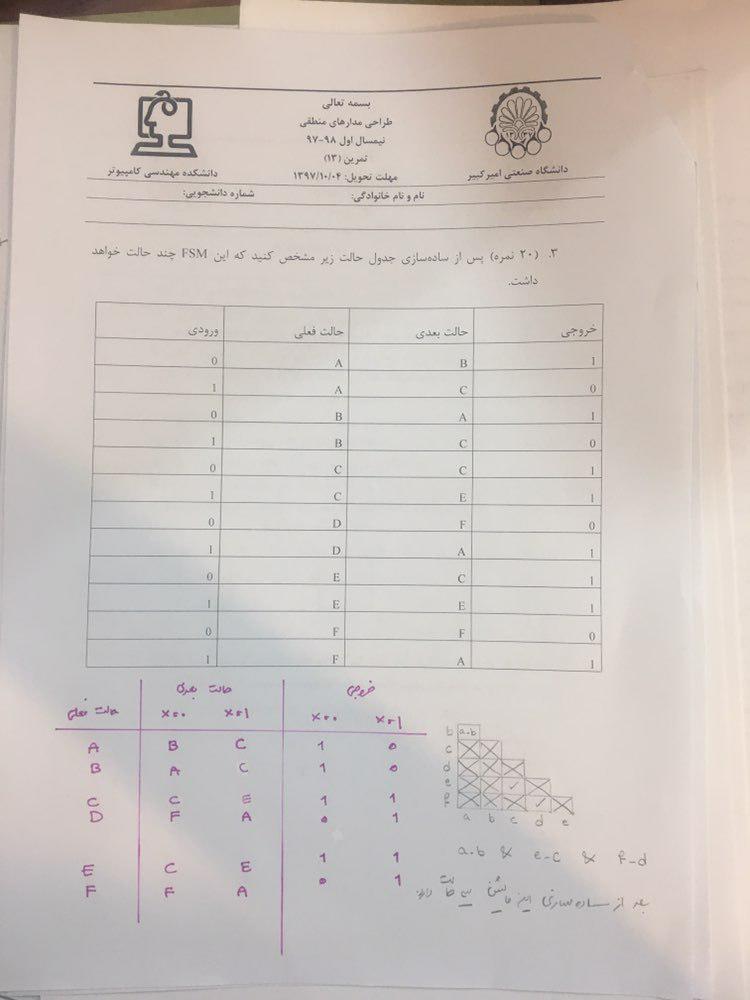 بسمه تعالی
طراحی مدارهای منطقی
نیمسال اول ۹۸-۹۷
تمرین (۱۳)
مهلت تحویل: ۱۳۹۷/۱۰/۰۴
دانشگاه صنعتی امیرکبیر
دانشکده مهندسی کامپیوتر
نام و نام خانوادگی: شماره دانشجویی:
۳. (۲۰ نمره) پس از ساده‌سازی جدول حالت زیر مشخص کنید که این FSM چند حالت خواهد
داشت.
ورودی حالت فعلی حالت بعدی خروجی
0 A B 1
1 A C 0
0 B A 1
1 B C 0
0 C C 1
1 C E 1
0 D F 0
1 D A 1
0 E C 1
1 E E 1
0 F F 0
1 F A 1
حالت فعلی حالت بعدی خروجی
x=0 x=1 x=0 x=1
A B C 1 0
B A C 1 0
C C E 1 1
D F A 0 1
E C E 1 1
F F A 0 1
b a-b
c
d
e ✓
f ✓
a b c d e
a-b & e-c & f-d
بعد از ساده سازی این ماشین سه حالت دارد.